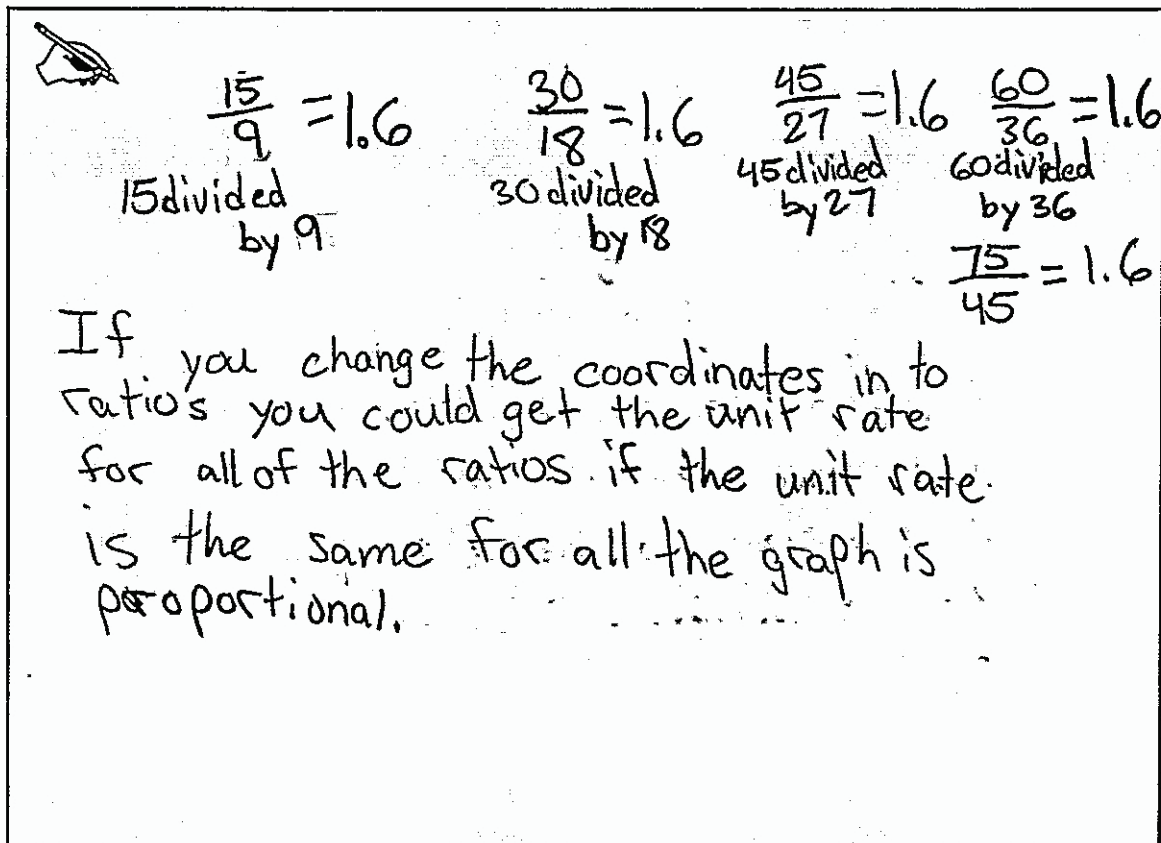 15/9 = 1.6 30/18 = 1.6 45/27 = 1.6 60/36 = 1.6
15 divided by 9 30 divided by 18 45 divided by 27 60 divided by 36
75/45 = 1.6
If you change the coordinates in to
ratios you could get the unit rate
for all of the ratios. if the unit rate
is the same for all the graph is
proportional.